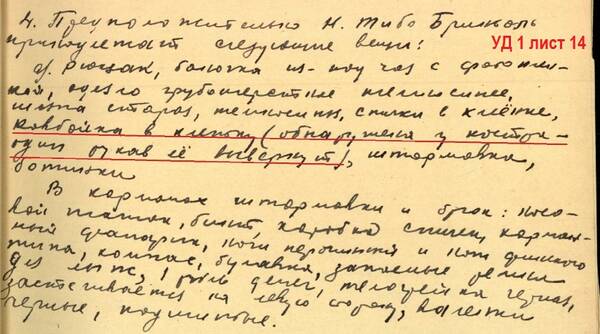 4. Предположительно Н. Тибо Бриньоль
принадлежат следующие вещи:
УД 1 лист 14
а/. Рюкзак, баночка из-под чая с
одеяло грубошерстное темносинее,
старая, спички в клёнке,
ковбойка в клетку (обнаружена у костра -
один рукав её вывернут), штормовка,
ботинки
В карманах штормовки и брюк: носо-
вой платок, бинт, коробка спичек, карман-
ный фонарик, нож перочинный и нож финского
типа, компас, булавка, запасные ремни
для лыж, рубль денег, телогрейка черная,
застегивается на левую сторону, валенки
черные, подшитые.